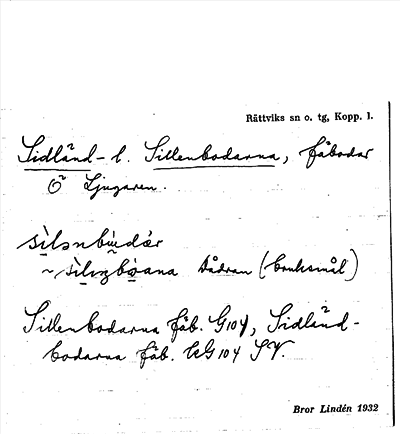 Rättviks sn o. tg, Kopp. l.
Sidländ- l. Sillenbodarna, fäbodar
Ö Ljugaren.
sìlənbùdàr
~ sìliŋbòana Dådran (bruksmål)
Sillenbodarna fäb. G104, Sidländ-
bodarna fäb. G104 SV.
Bror Lindén 1932